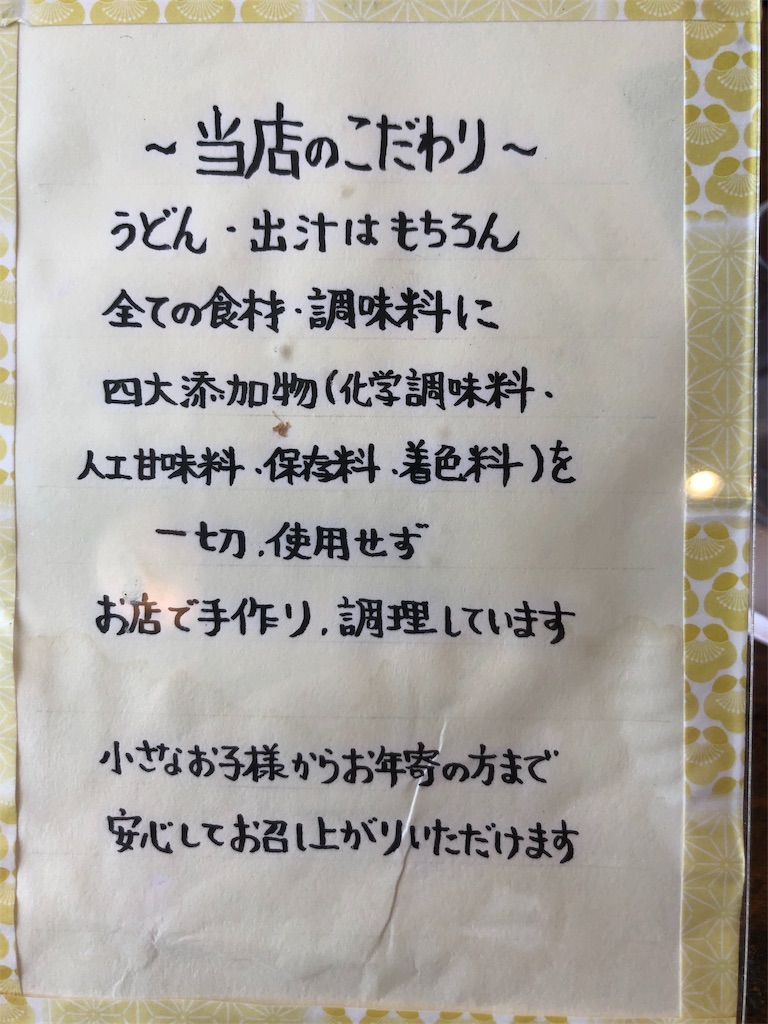 ～当店のこだわり～
うどん・出汁はもちろん
全ての食材・調味料に
四大添加物(化学調味料・
人工甘味料・保存料・着色料)を
一切、使用せず
お店で手作り、調理しています
小さなお子様からお年寄の方まで
安心してお召し上がりいただけます